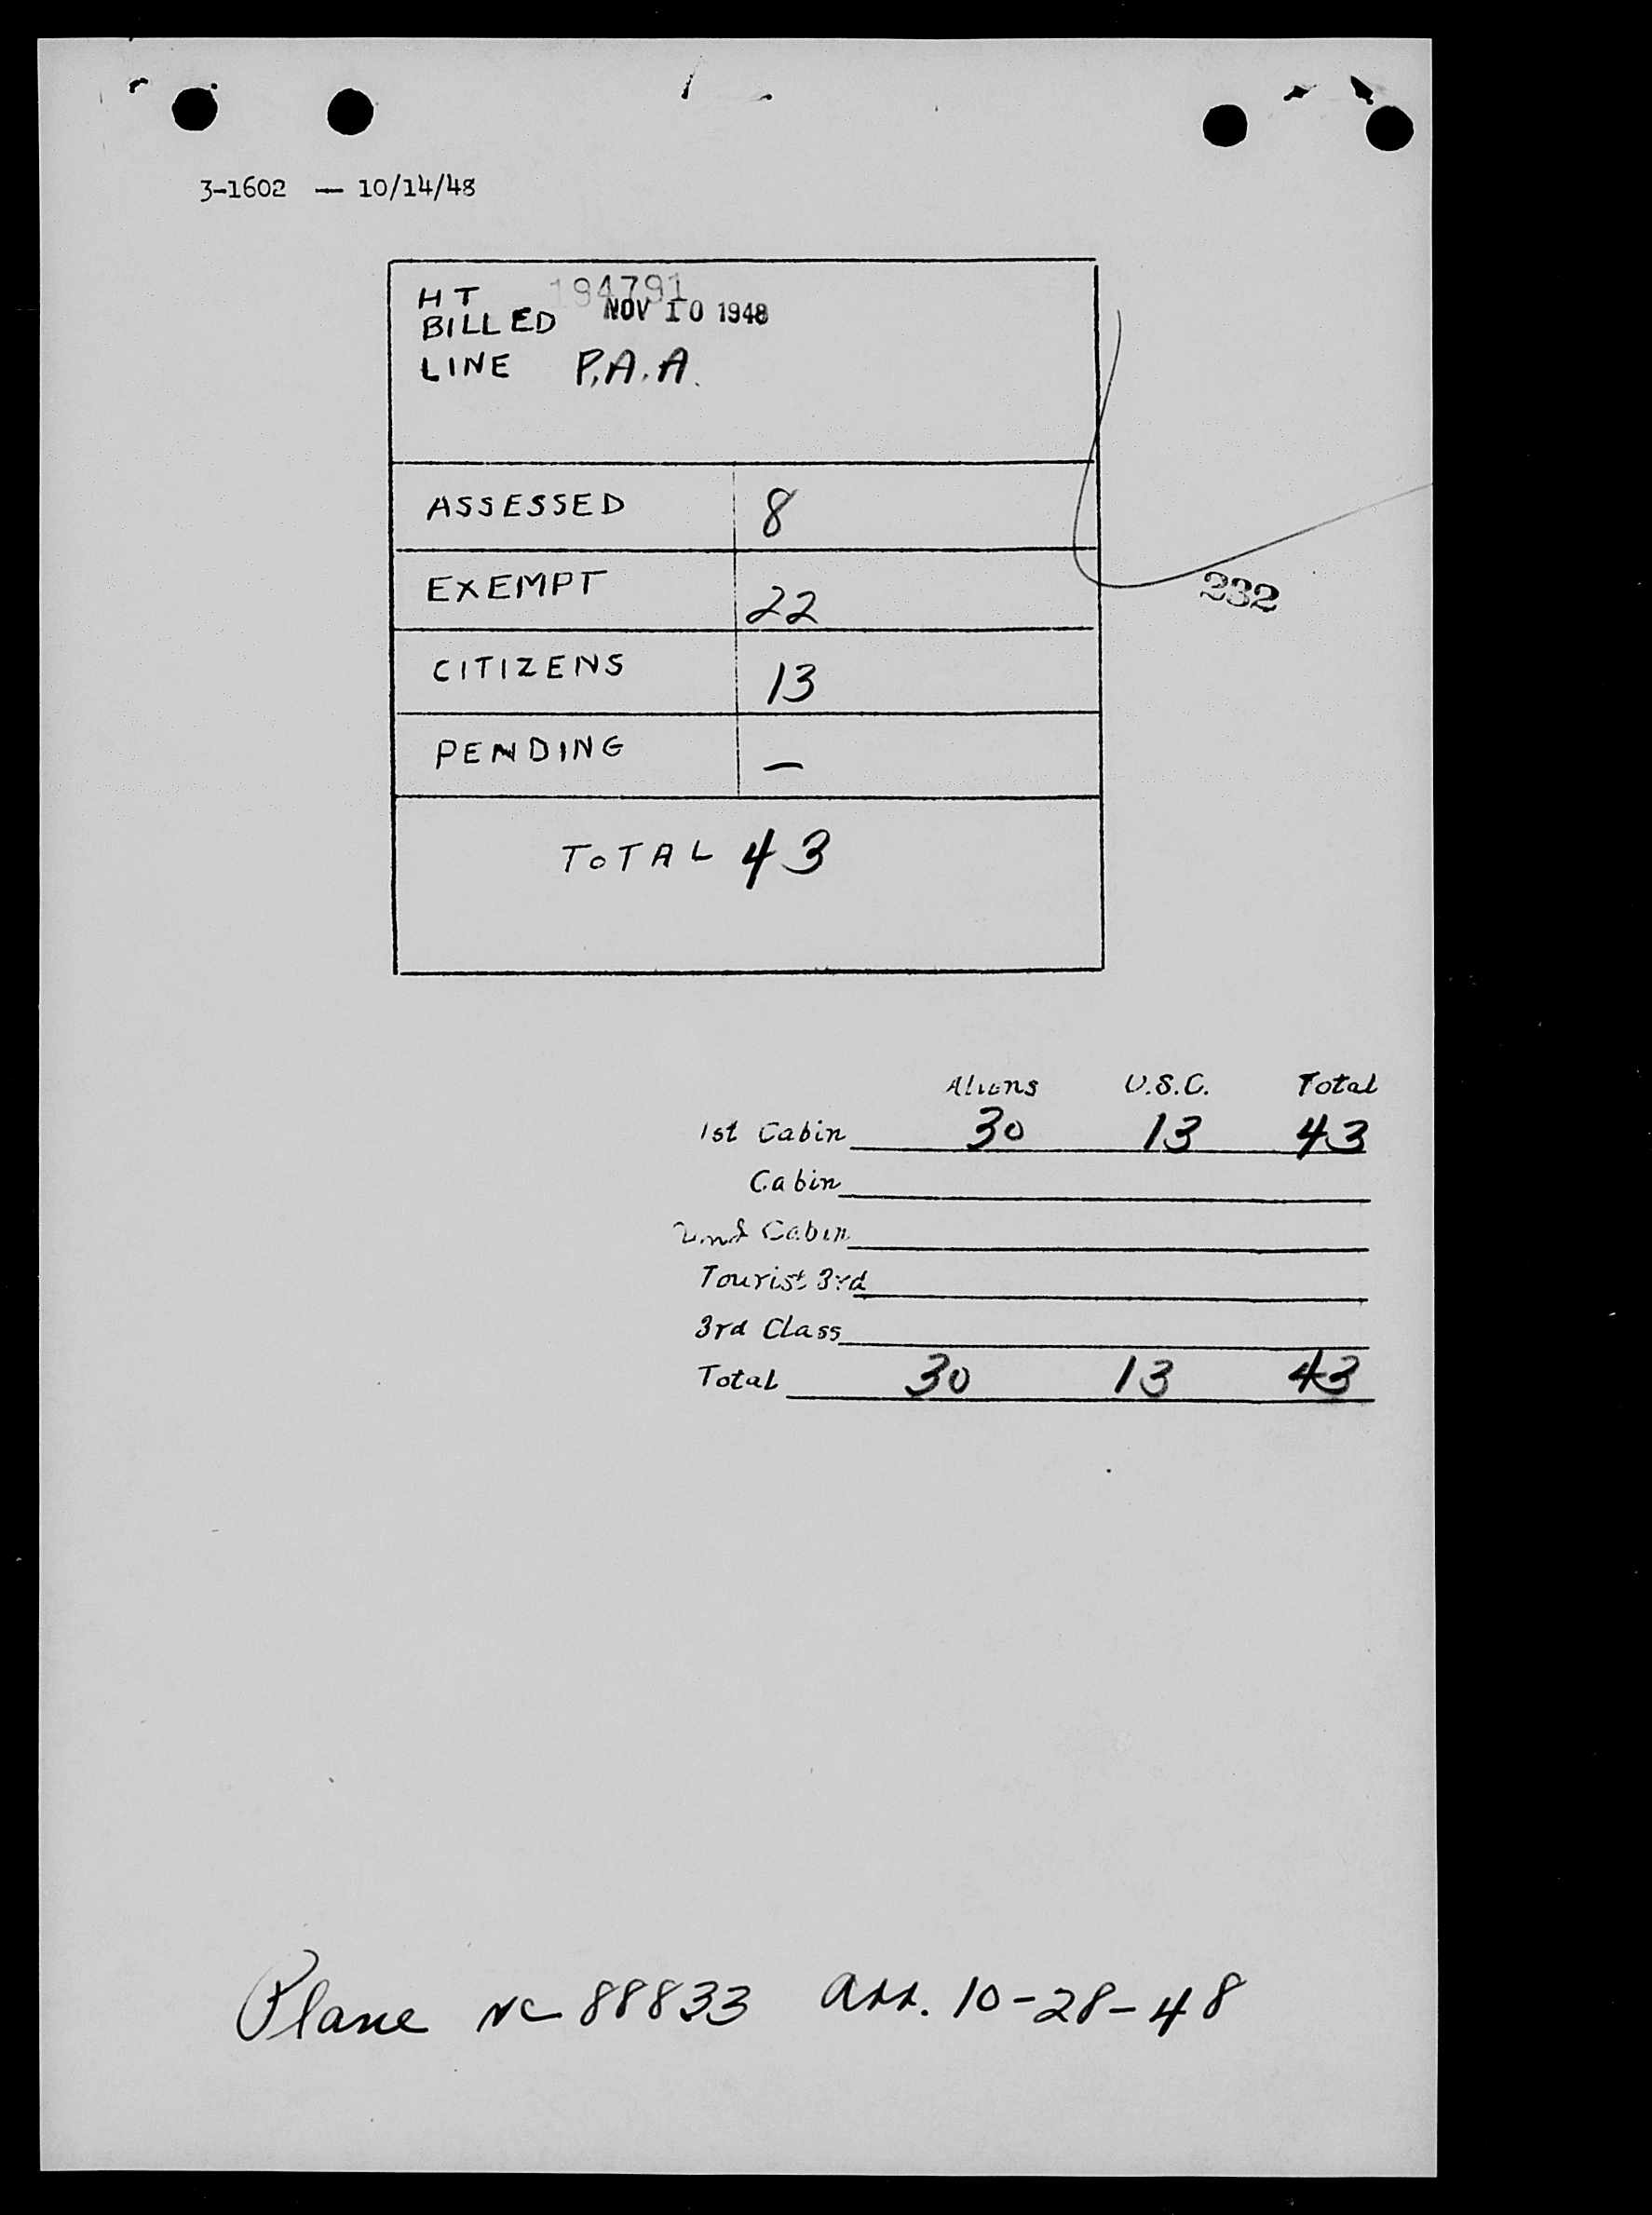 3-1602 — 10/14/48
HT 194791
BILLED NOV 10 1948
LINE P.A.A.
ASSESSED 8
EXEMPT 22
232
CITIZENS 13
PENDING —
TOTAL 43
Aliens U.S.C. Total
1st Cabin 30 13 43
Cabin
2nd Cabin
Tourist 3rd
3rd Class
Total 30 13 43
Plane NC 88833 arr. 10-28-48